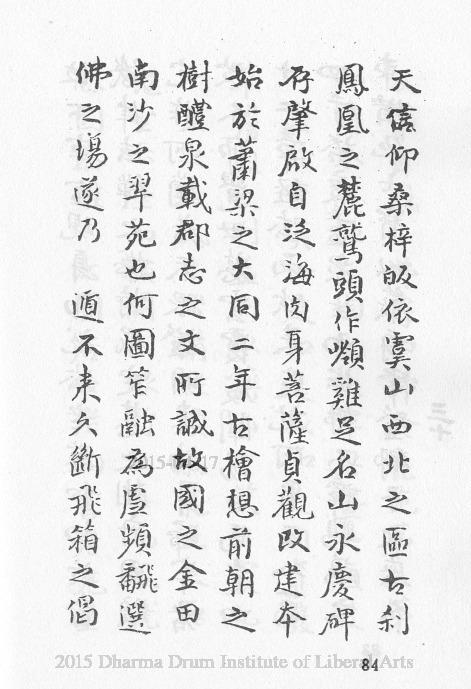 天信仰桑梓皈依虞山西北之區古剎
鳳凰之麓鷲頭作嶺雞足名山永慶碑
存肇啟自泛海肉身菩薩貞觀改建本
始於蕭梁之大同二年古檜想前朝之
樹醴泉載郡志之文所誠故國之金田
南沙之翠苑也何圖笮融為虛頻翻選
佛之場遂乃 遁不来久斷飛箱之偈
84
2015 Dharma Drum Institute of Liberal Arts